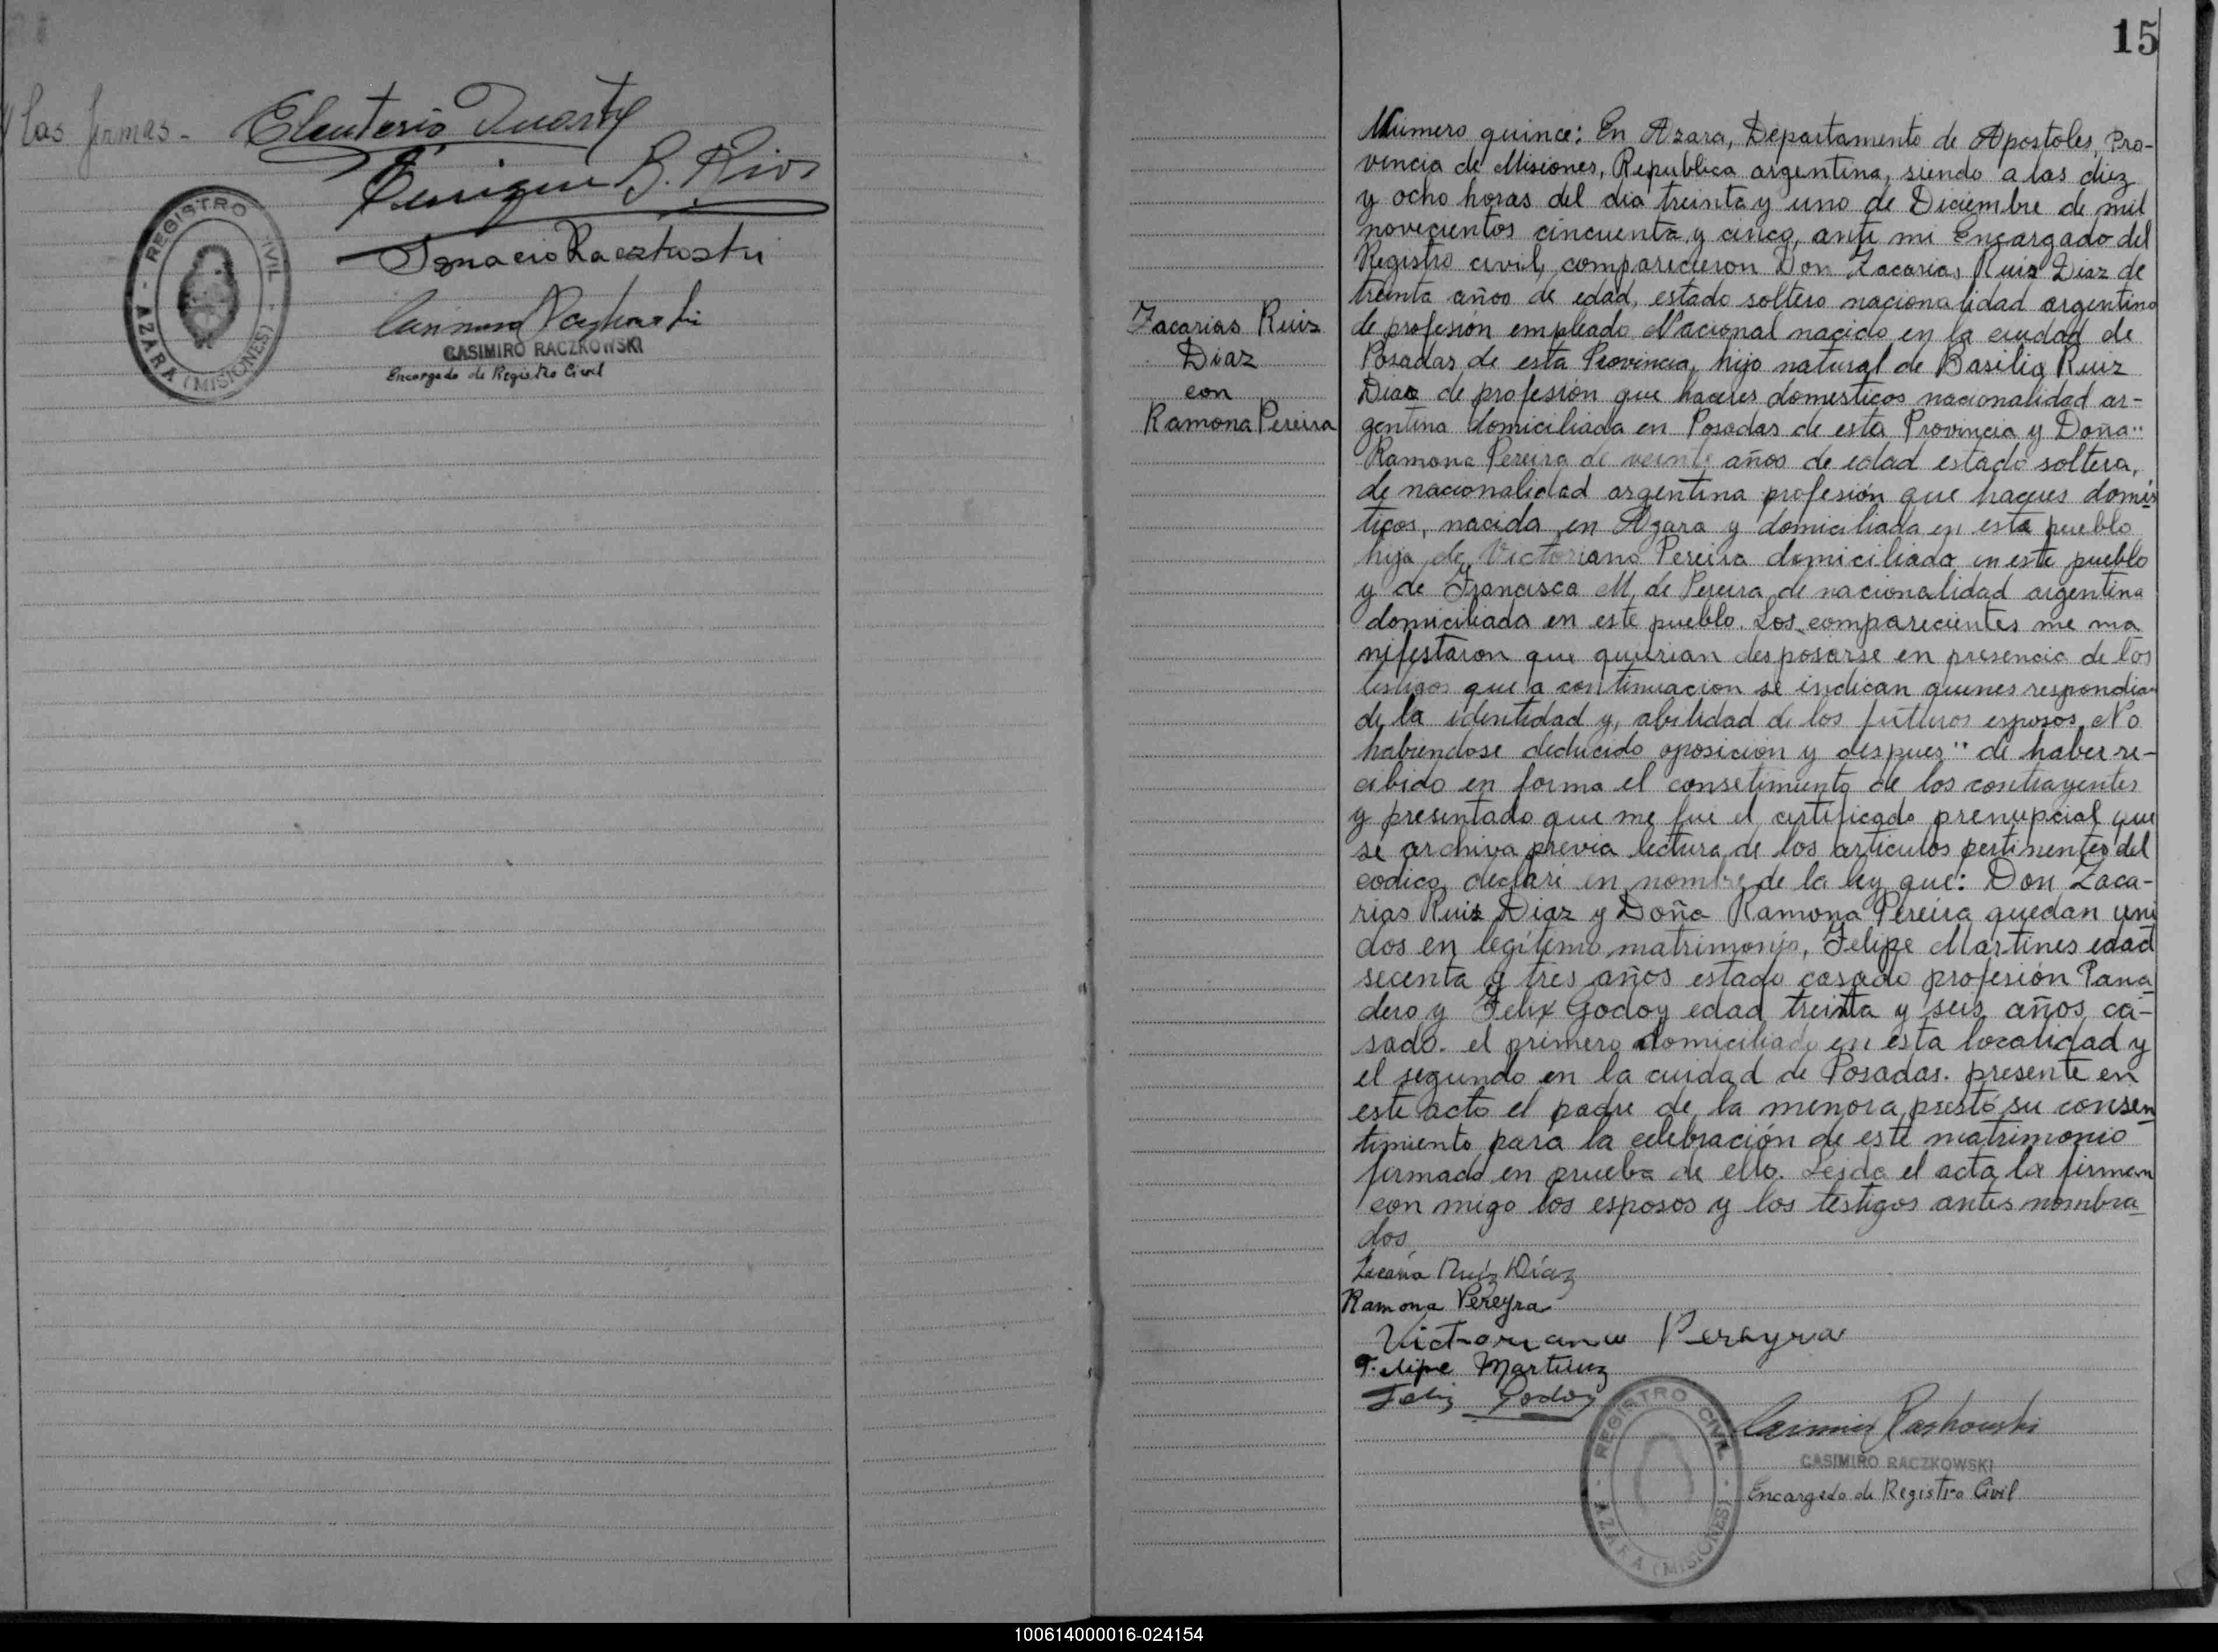 las firmas -
Eleuterio Duarte
Enrique B. Rios
Ignacio Raczkoski
REGISTRO CIVIL
AZARA (MISIONES)
CASIMIRO RACZKOWSKI
Encargado de Registro Civil
15
Zacarias Ruiz
Diaz
con
Ramona Pereira
Número quince: En Azara, Departamento de Apostoles, Pro-
vincia de Misiones, Republica argentina, siendo a las diez
y ocho horas del dia treinta y uno de Diciembre de mil
novecientos cincuenta y cinco, ante mi Encargado del
Registro civil, comparecieron Don Zacarias Ruiz Diaz de
treinta años de edad, estado soltero nacionalidad argentino
de profesión empleado Nacional nacido en la ciudad de
Posadas de esta Provincia, hijo natural de Basilia Ruiz
Diaz de profesión que haceres domesticos nacionalidad ar-
gentina domiciliada en Posadas de esta Provincia y Doña"
Ramona Pereira de veinte años de edad estado soltera,
de nacionalidad argentina profesión que haceres domés
ticos, nacida en Azara y domiciliada en este pueblo
hija de Victoriano Pereira domiciliado en este pueblo
y de Francisca M. de Pereira de nacionalidad argentina
domiciliada en este pueblo. Los comparecientes me ma
nifestaron que querian desposarse en presencia de los
testigos que a continuacion se indican quienes respondian
de la identidad y, abilidad de los futuros esposos No
habiendose deducido oposición y despues" de haber re-
cibido en forma el consetimiento de los contrayentes
y presentado que me fue el certificado prenupcial que
se archiva previa lectura de los articulos pertinentes del
codico, declaré en nombre de la ley que: Don Zaca-
rias Ruiz Diaz y Doña Ramona Pereira quedan uni
dos en legítimo matrimonio, Felipe Martines edad
secenta y tres años estado casado profesión Pana
dero y Felix Godoy edad treinta y seis años, ca-
sado. el primero domiciliado en esta localidad y
el segundo en la cuidad de Posadas. presente en
este acto el padre de la menora prestó su consen
timiento para la celebración de este matrimonio
firmado en prueba de ello. Leida el acta la firman
con migo los esposos y los testigos antes nombra
dos
Zacaria Ruíz Díaz
Ramona Pereyra
Victoriano Pereyra
Felipe Martinez
Feliz Godoy
REGISTRO CIVIL
AZARA (MISIONES)
Casimiro Raczkowski
CASIMIRO RACZKOWSKI
Encargado de Registro Civil
100614000016-024154